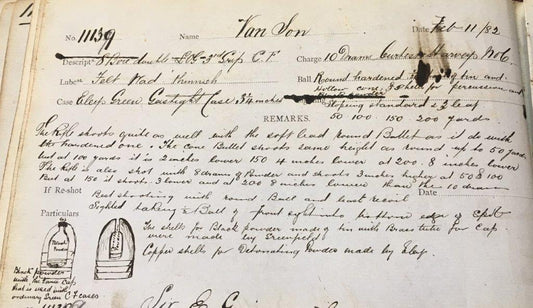 No. 11139 Name Van Son Date Feb 11/82
Descriptn 8 Bore double Grip C.F. Charge 10 Drams Curtis & Harveys No 6
Labour Felt Wad Ball Round hardened tin and
Hollow cone & shell for percussion and
Case Eley's Green Gastight Case 3¼ inches Sloping standard & 3 leaf
REMARKS. 50 100 150 200 yards
The Rifle shoots quite as well with the soft lead round Bullet as it do with
the hardened one. The cone Bullet shoots same height as round up to 50 yards
but at 100 yards it is 2 inches lower 150 4 inches lower at 200. 8 inches lower
The Rifle is also shot with 8 drams of Powder and shoots 3 inches higher at 50 & 100
But at 150 it shoots 3 lower and at 200 8 inches lower than the 10 drams
If Re-shot Date
Best shooting with round Ball and least recoil
Particulars Sighted taking Ball of front sight into bottom edge of
The shells for Black powder made of tin with Brass tube for Cap
were made by Greenfield
Copper shells for Detonating Powder made by Eley
Black Powder
Black powder
with the same Cap
that is used with
ordinary Green C.F. cases